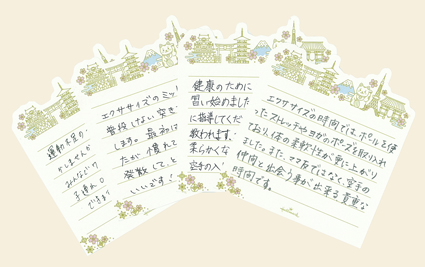 運動不足の
かしませんか
みんなでワ
子連れO
できます
エクササイズのミッ
普段しない突き
します。最初は
たが慣れて
発散して、と
いいです
健康のために
習い始めました
に指導してくだ
救われます。
柔らかくな
空手の入
エクササイズの時間では、ボールを使
ったストレッチやヨガのポーズを取り入れ
ており、体の柔軟性が更に上がり
ました。また、ママ友ではなく、空手の
仲間と出会う事が出来る貴重な
時間です。